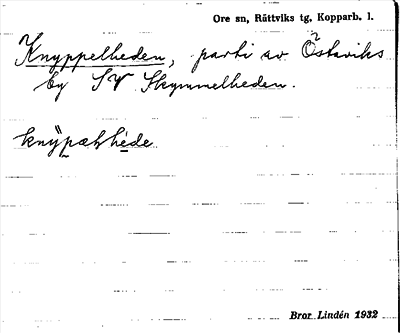 Ore sn, Rättviks tg, Kopparb. l.
Knyppelheden, parti av Östaviks
by SV Skymmelheden.
knÿpæłhède
Bror Lindén 1932